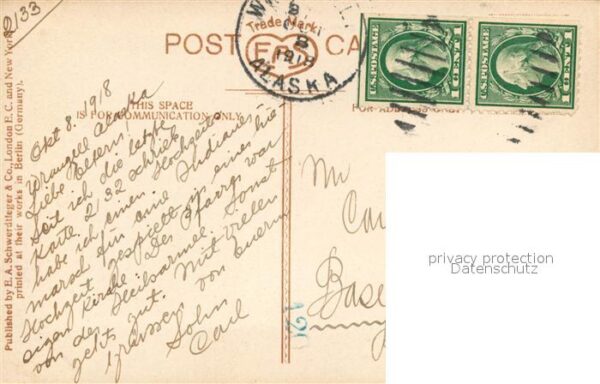 2133
Published by E. A. Schwerdtfeger & Co., London E. C. and New York,
printed at their works in Berlin (Germany).
POST CA
Trade Mark
EAS
W
8
1918
ALASKA
U.S. POSTAGE
1 CENT 1
U.S. POSTAGE
1 CENT 1
THIS SPACE
IS FOR COMMUNICATION ONLY.
FOR ADDRESS ONLY
Okt 8. 1918
Wrangell Alaska
Liebe Eltern!
Seit ich die letzte
Karte 2,132 schrieb
habe ich einen Hochzeits
marsch für eine Indianer
Hochzeit gespielt in einer hie
sigen Kirche. Der Pfarrer war
von der Heilsarmee. Sonst
gehts gut. Mit vielen
Grüssen von Euerm
Sohn
Carl
Mr
Ca
Base
129
privacy protection
Datenschutz